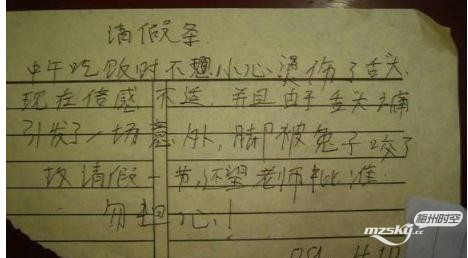 请假条
中午吃饭时不想小心烫伤了舌头.
现在倍感不适 并且由于舌头痛
引发了一场意外,脚被兔子咬了
故请假一节,还望老师批准.
勿担心!
梅州时空
mzsky.cc